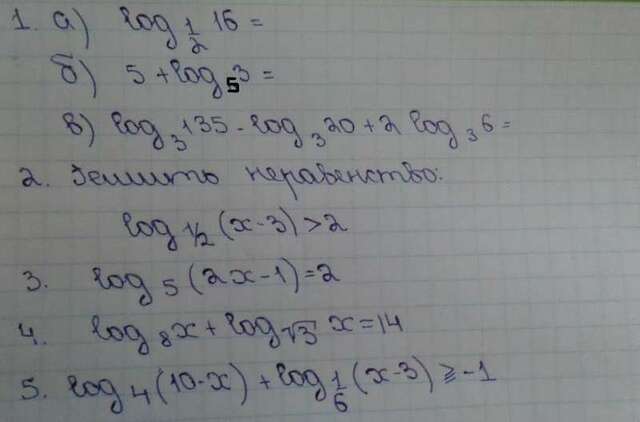 1. а) log 1/2 16 =
б) 5 + log 5 3 =
в) log 3 135 - log 3 20 + 2 log 3 6 =
2. Решить неравенство:
log 1/2 (x-3) > 2
3. log 5 (2x-1) = 2
4. log 8 x + log √3 x = 14
5. log 4 (10-x) + log 1/6 (x-3) ≥ -1